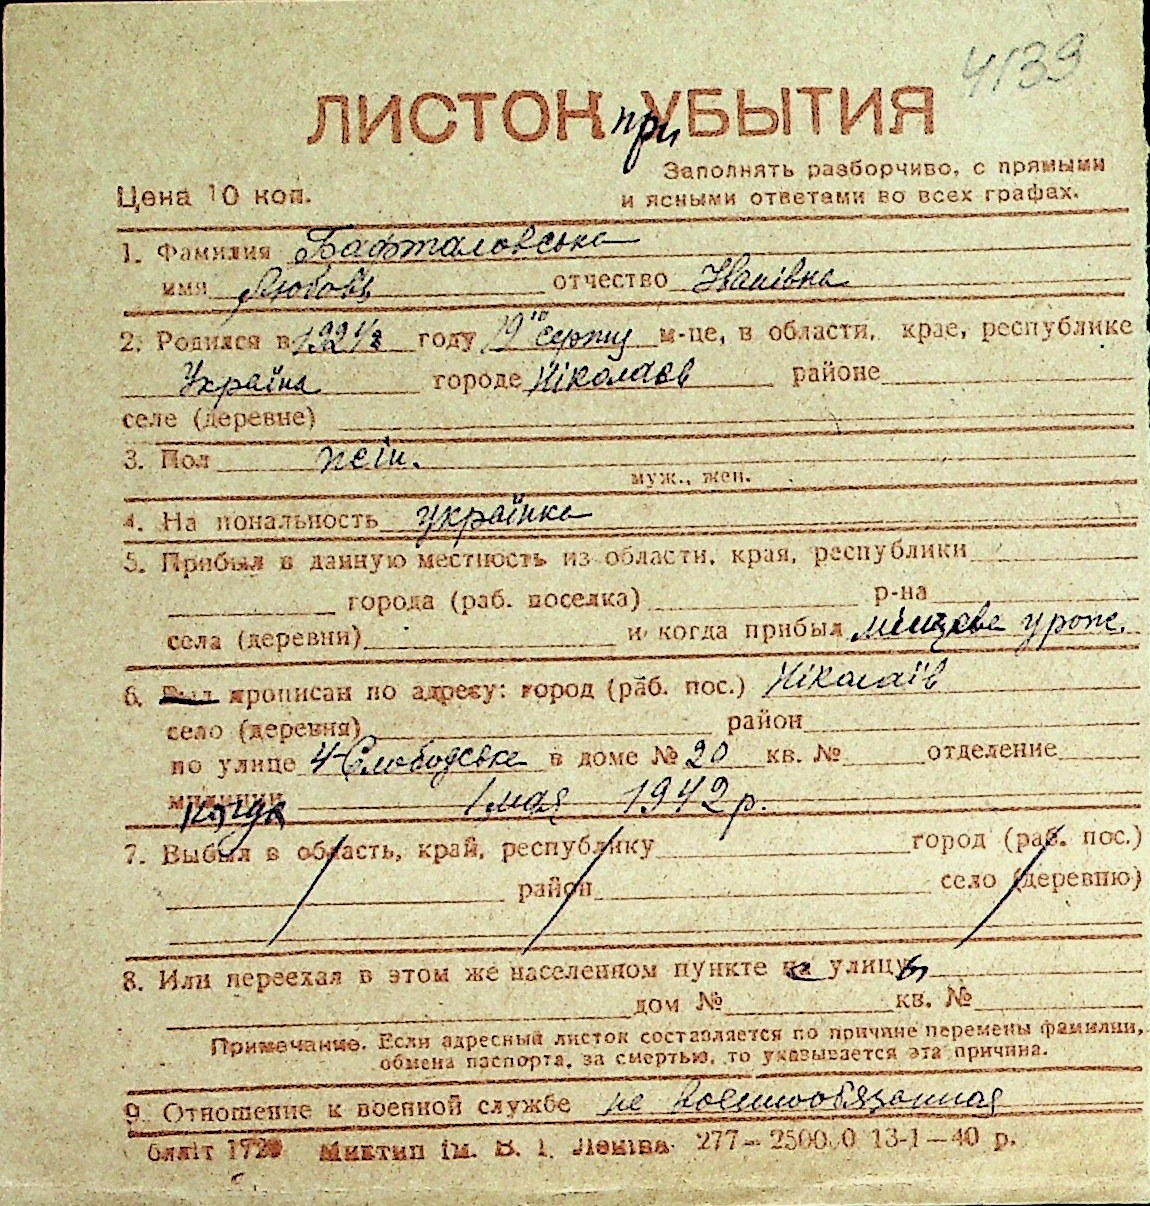 4139
ЛИСТОК при УБЫТИЯ
Заполнять разборчиво, с прямыми
Цена 10 коп.
и ясными ответами во всех графах.
1. Фамилия Бафталовська
имя Любовь отчество Іванівна
2. Родился в году серпня м-це, в области, крае, республике
Україна городе Ніколаєв районе
селе (деревне)
3. Пол жін.
муж., жен.
4. Национальность українка
5. Прибыл в данную местность из области, края, республики
города (раб. поселка) р-на
села (деревни) и когда прибыл місцева урож.
6. Был прописан по адресу: город (раб. пос.) Ніколаїв
село (деревня) район
по улице 4 Слободська в доме № 20 кв. № отделение
милиции когда 1 мая 1942 р.
7. Выбыл в область, край, республику город (раб. пос.)
район село (деревню)
8. Или переехал в этом же населенном пункте с улицы
дом № кв. №
Примечание. Если адресный листок составляется по причине перемены фамилии,
обмена паспорта, за смертью, то указывается эта причина.
9. Отношение к военной службе не военнообязанная
Миктип ім. В. І. Леніна 277—2500 0 13-1—40 р.